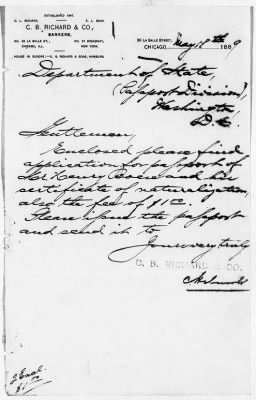 ESTABLISHED 1847.
C. L. RICHARD. E. L. BOAS.
C. B. RICHARD & CO.,
BANKERS,
NO. 26 LA SALLE ST., NO. 61 BROADWAY,
CHICAGO, ILL. NEW YORK.
HOUSE IN EUROPE:—C. B. RICHARD & BOAS, HAMBURG
LA SALLE STREET,
CHICAGO, May 18th 1889
Department of State,
(Passport Division)
Washington,
D.C.
Gentlemen,
Enclosed please find
application for passport of
Mr Henry and his
certificate of naturalization
also the fee of $1.00.
Please issue the passport
and send it to
Yours very truly
C. B. RICHARD & CO.
2 Encl.
$1.00